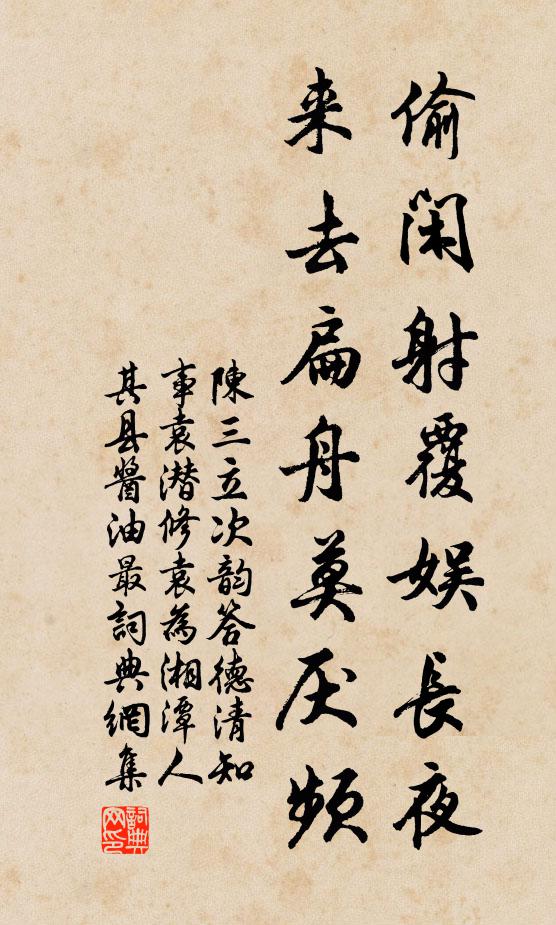 偷閑射覆娱長夜
来去扁舟莫厌頻
陳三立次韵答德清知
事袁潜修袁為湘潭人
其县醬油最詞典網集
詞典网印